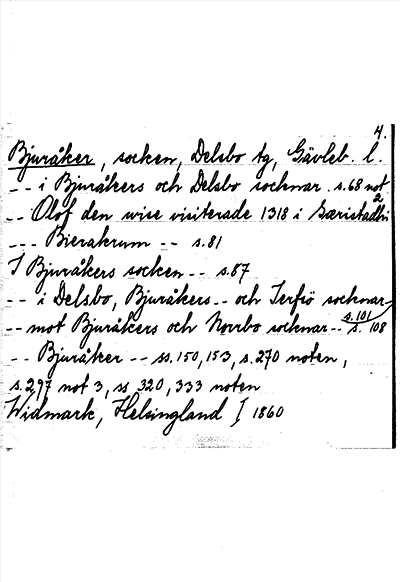 4.
Bjuråker, socken, Delsbo tg, Gävleb. l.
-- i Bjuråkers och Delsbo socknar. s.68 not 2
-- Olof den wise visiterade 1318 i Gæristadhi
--- Bierakrum -- s.81
I Bjuråkers socken -- s.87
-- i Delsbo, Bjuråkers -- och Jerfsö socknar -- s.101
-- mot Bjuråkers och Norrbo socknar -- s. 108
-- Bjuråker -- ss.150,153, s.270 noten,
s.297 not 3, ss 320,333 noten
Widmark, Helsingland I 1860